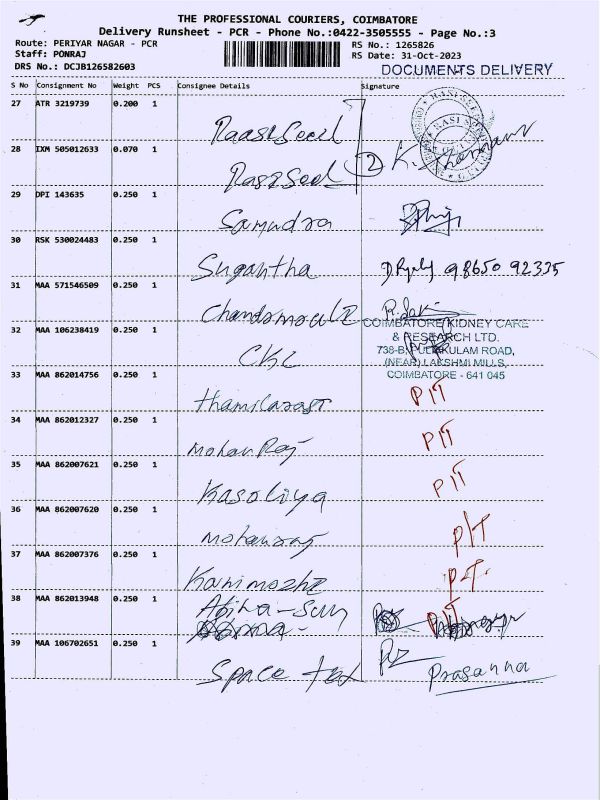 THE PROFESSIONAL COURIERS, COIMBATORE
Delivery Runsheet - PCR - Phone No.:0422-3505555 - Page No.:3
Route: PERIYAR NAGAR - PCR
Staff: PONRAJ
DRS No.: DCJB126582603
RS No.: 1265826
RS Date: 31-Oct-2023
DOCUMENTS DELIVERY
S No Consignment No Weight PCS Consignee Details Signature
27 ATR 3219739 0.200 1
28 IXM 505012633 0.070 1
2 K.
29 DPI 143635 0.250 1 Samudra
30 RSK 530024483 0.250 1 Sugantha 98650 92335
31 MAA 571546509 0.250 1
32 MAA 106238419 0.250 1 CKC
COIMBATORE KIDNEY CARE
& RESEARCH LTD.
738-B, PULIAKULAM ROAD,
(NEAR) LAKSHMI MILLS,
COIMBATORE - 641 045
33 MAA 862014756 0.250 1 Thamilarasi P/T
34 MAA 862012327 0.250 1 Mohan Raj P/T
35 MAA 862007621 0.250 1 Kasoliya P/T
36 MAA 862007620 0.250 1 Mohanraj P/T
37 MAA 862007376 0.250 1 Kanimozhi P/T
38 MAA 862013948 0.250 1 P/T
39 MAA 106702651 0.250 1 Space Prasanna